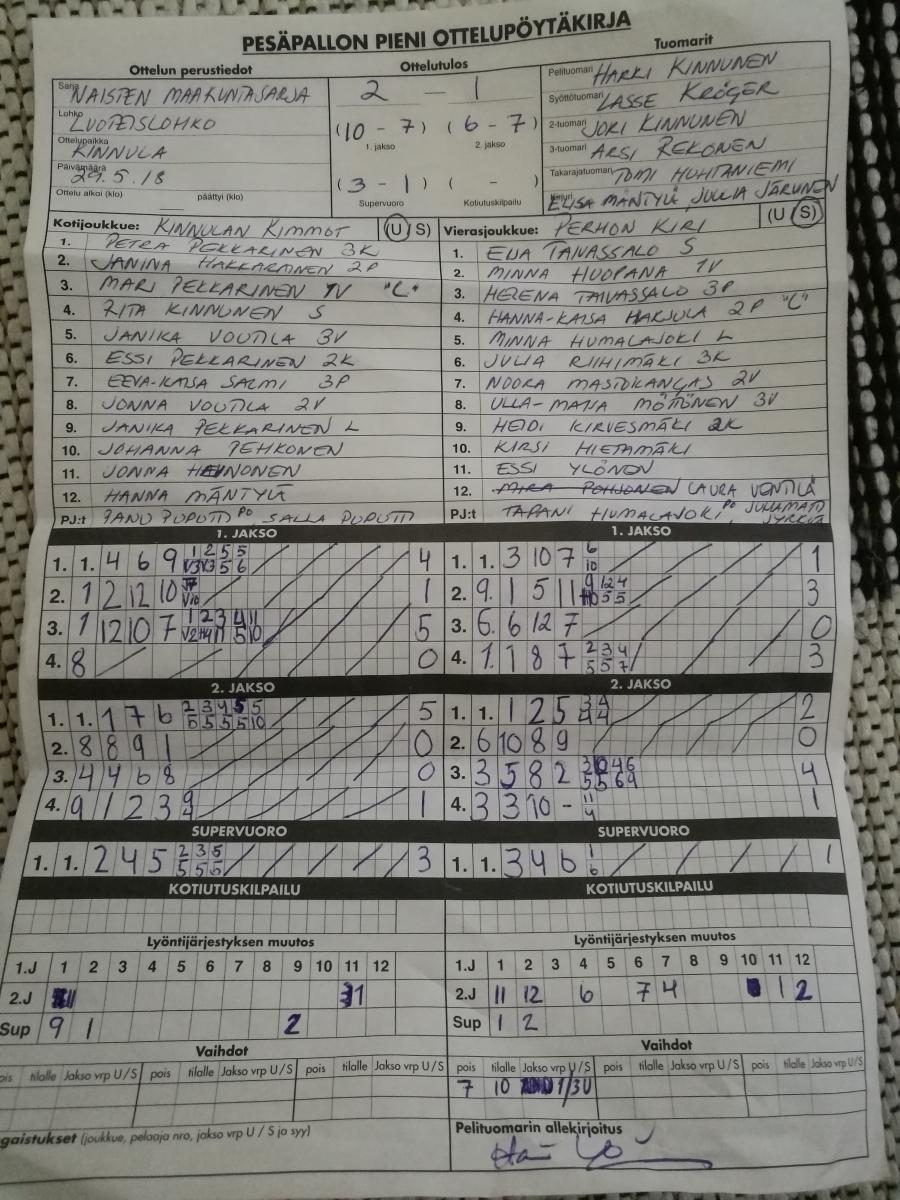 PESÄPALLON PIENI OTTELUPÖYTÄKIRJA
Ottelun perustiedot
Sarja NAISTEN MAAKUNTASARJA
Lohko
Ottelupaikka KINNULA
Päivämäärä 29.5.18
Ottelu alkoi (klo) päättyi (klo)
Ottelutulos
2 - 1
(10 - 7) (6 - 7)
1. jakso 2. jakso
(3 - 1) ( - )
Supervuoro Kotiutuskilpailu
Tuomarit
Pelituomari HARRI KINNUNEN
Syöttötuomari LASSE KRÖGER
2-tuomari JORI KINNUNEN
3-tuomari ARSI REKONEN
Takarajatuomari TOMI HUHTANIEMI
Kirjuri ELISA MÄNTYLÄ, JULIA JÄRVINEN
Kotijoukkue: KINNULAN KIMMOT (U/S)
1. PETRA PEKKARINEN 3K
2. JANINA HAKKARAINEN 2P
3. MARI PEKKARINEN 1V "C"
4. RITA KINNUNEN S
5. JANIKA VOUTILA 3V
6. ESSI PEKKARINEN 2K
7. EEVA-KAISA SALMI 3P
8. JONNA VOUTILA 2V
9. JANIKA PEKKARINEN L
10. JOHANNA PEHKONEN
11. JONNA
12. HANNA MÄNTYLÄ
PJ:t JANO PUPUTTI PO, SALLA PUPUTTI
Vierasjoukkue: PERHON KIRI (U/S)
1. ELIA TAIVASSALO S
2. MINNA HUOPANA 1V
3. HELENA TAIVASSALO 3P
4. HANNA-KAISA HARJULA 2P "C"
5. MINNA HUMALAJOKI L
6. JULIA RIIHIMÄKI 3K
7. NOORA MASTOKANGAS 2V
8. ULLA-MAIJA MÖTTÖNEN 3V
9. HEIDI KIRVESMÄKI 2K
10. KIRSI HIETAMÄKI
11. ESSI YLÖNEN
12. MIRA POHJONEN LAURA
PJ:t TAPANI HUMALAJOKI PO
1. JAKSO
1. 1. 4 6 9 4
2. 1 2 12 10 1
3. 1 12 10 7 5
4. 8 0
1. JAKSO
1. 1. 3 10 7 6 10 1
2. 9. 1 5 11 3
3. 6. 6 12 7 0
4. 1. 1 8 7 2 3 4 5 5 7 3
2. JAKSO
1. 1. 1 7 6 2 3 4 5 5 5 5 5 5 10 5
2. 8 8 9 1 0
3. 4 4 6 8 0
4. 9 1 2 3 9 4 1
2. JAKSO
1. 1. 1 2 5 3 4 4 4 2
2. 6 10 8 9 0
3. 3 5 8 2 4
4. 3 3 10 - 11 4 1
SUPERVUORO
1. 1. 2 4 5 2 3 5 5 5 5 3
SUPERVUORO
1. 1. 3 4 6 1 6 1
KOTIUTUSKILPAILU
KOTIUTUSKILPAILU
Lyöntijärjestyksen muutos
1.J 1 2 3 4 5 6 7 8 9 10 11 12
2.J 11 1
Sup 9 1 2
Lyöntijärjestyksen muutos
1.J 1 2 3 4 5 6 7 8 9 10 11 12
2.J 11 12 6 7 4 1 2
Sup 1 2
Vaihdot
pois tilalle Jakso vrp U/S pois tilalle Jakso vrp U/S pois tilalle Jakso vrp U/S
Vaihdot
pois tilalle Jakso vrp U/S pois tilalle Jakso vrp U/S pois tilalle Jakso vrp U/S
7 10 1/3U
gaistukset (joukkue, pelaaja nro, jakso vrp U / S ja syy)
Pelituomarin allekirjoitus